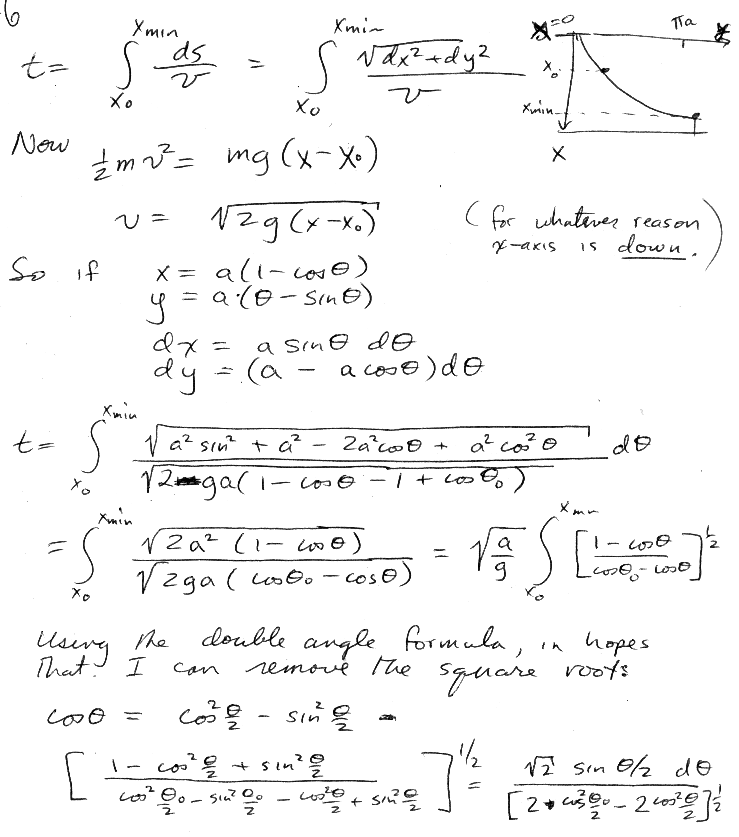 6
t = ∫_{x₀}^{xmin} ds/v = ∫_{x₀}^{xmin} √(dx² + dy²) / v
x=0 πa
x₀
xmin
x
Now ½mv² = mg(x-x₀)
v = √(2g(x-x₀))
(for whatever reason
x-axis is down.)
So if x = a(1-cosθ)
y = a·(θ - sinθ)
dx = a sinθ dθ
dy = (a - a cosθ)dθ
t = ∫_{x₀}^{xmin} √(a² sin² + a² - 2a²cosθ + a² cos²θ) / √(2ga(1-cosθ -1 + cosθ₀)) dθ
= ∫_{x₀}^{xmin} √(2a² (1-cosθ)) / √(2ga(cosθ₀ - cosθ)) = √(a/g) ∫_{x₀}^{xmin} [(1-cosθ)/(cosθ₀-cosθ)]^{1/2}
Using the double angle formula, in hopes
that I can remove the square roots
cosθ = cos² θ/2 - sin² θ/2
[(1 - cos² θ/2 + sin² θ/2) / (cos² θ₀/2 - sin² θ₀/2 - cos² θ/2 + sin² θ/2)]^{1/2} = √2 sin θ/2 dθ / [2 cos² θ₀/2 - 2 cos² θ/2]^{1/2}